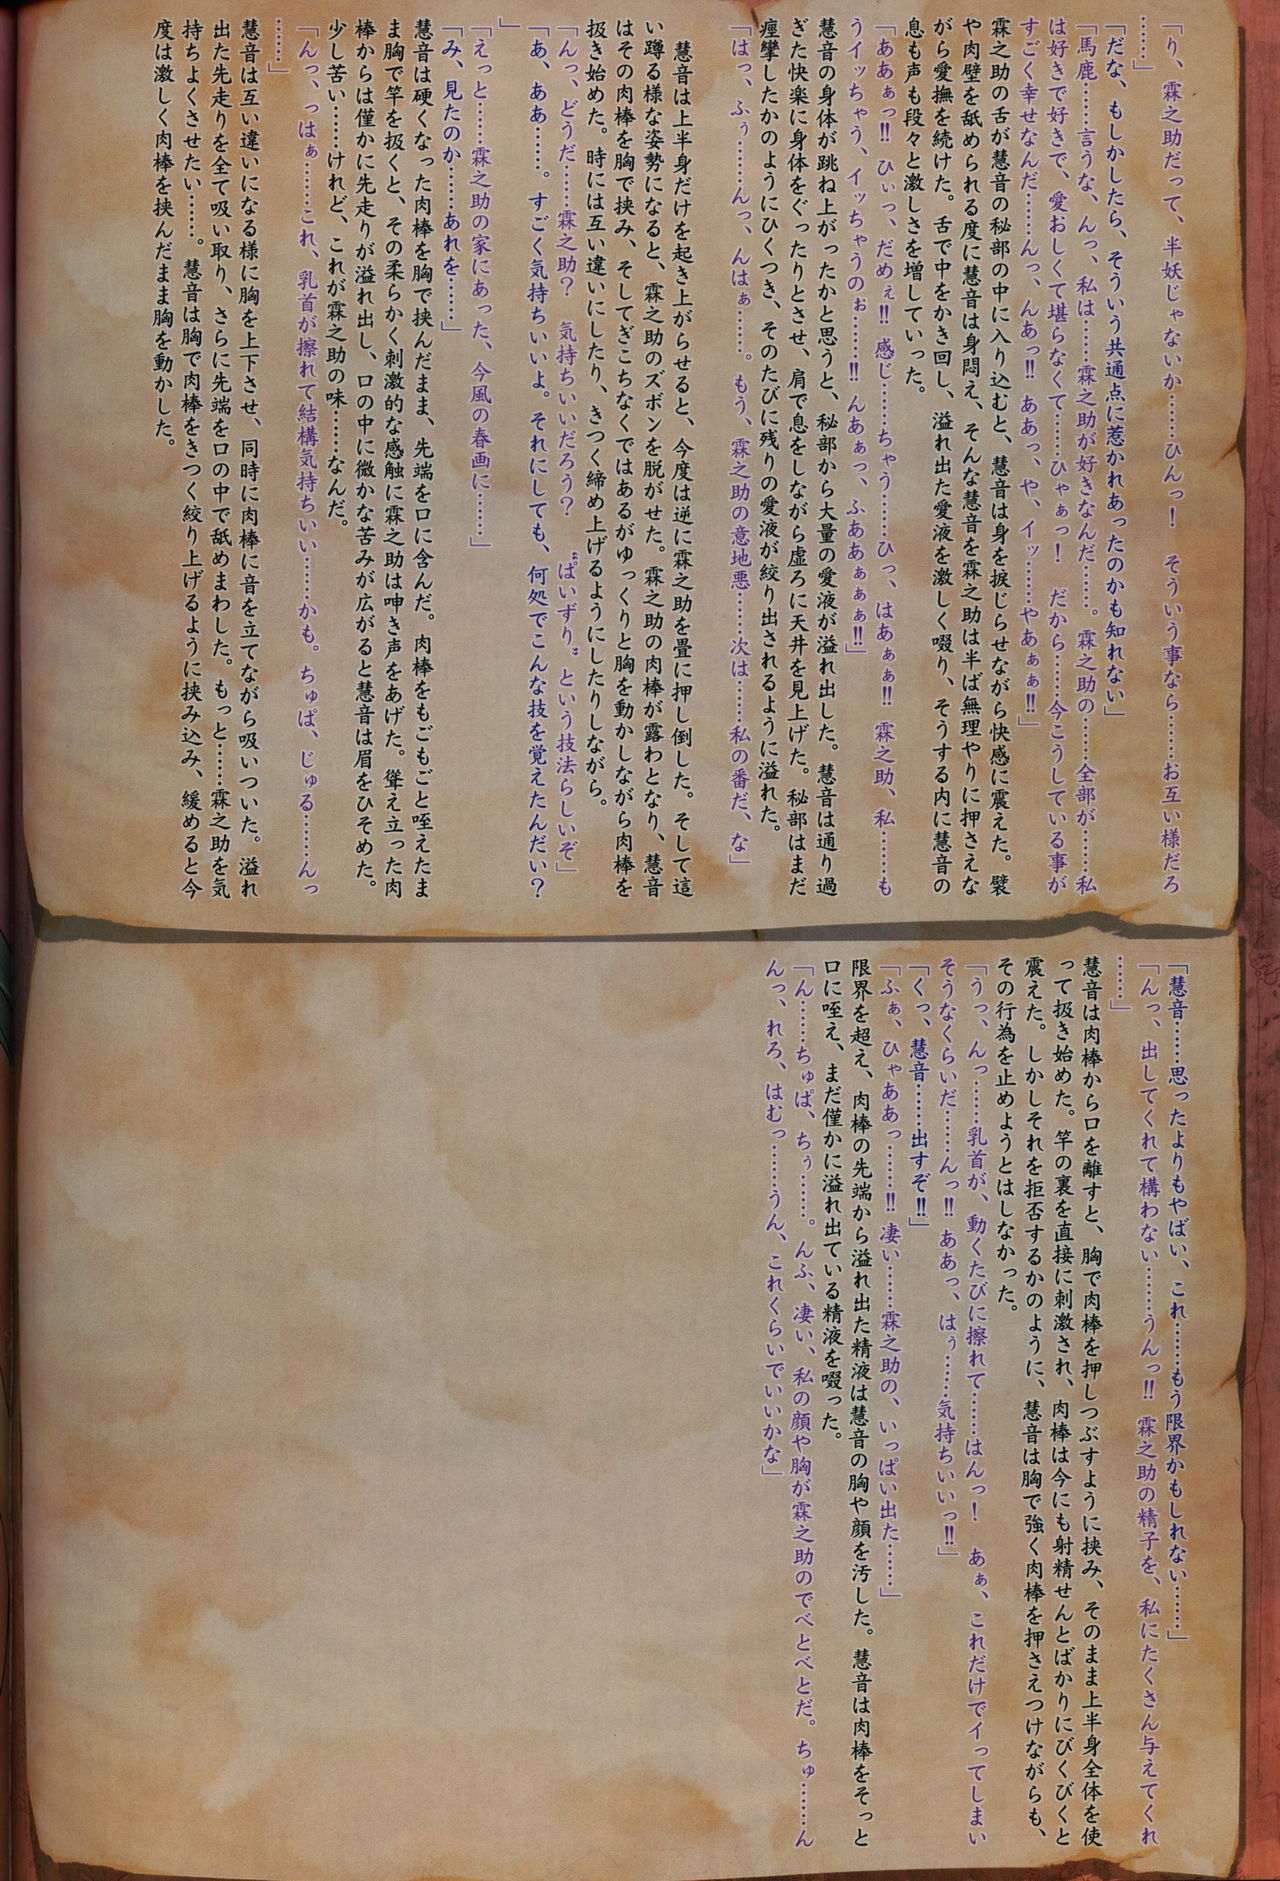 「り、霖之助だって、半妖じゃないか……ひんっ！　そういう事なら……お互い様だろ
……」
「だな、もしかしたら、そういう共通点に惹かれあったのかも知れない」
「馬鹿……言うな、んっ、私は……霖之助が好きなんだ……。霖之助の……全部が……私
は好きで好きで、愛おしくて堪らなくて……ひゃぁっ！　だから……今こうしている事が
すごく幸せなんだ……んっ、んあっ!!　ああっ、や、イッ……やあぁぁ!!」
霖之助の舌が慧音の秘部の中に入り込むと、慧音は身を捩じらせながら快感に震えた。襞
や肉壁を舐められる度に慧音は身悶え、そんな慧音を霖之助は半ば無理やりに押さえな
がら愛撫を続けた。舌で中をかき回し、溢れ出た愛液を激しく啜り、そうする内に慧音の
息も声も段々と激しさを増していった。
「ああぁっ!!　ひぃっ、だめぇ!!　感じ……ちゃう……ひっ、はあぁぁ!!　霖之助、私……も
うイッちゃう、イッちゃうのぉ……!!　んあぁっ、ふああぁぁぁぁ!!」
慧音の身体が跳ね上がったかと思うと、秘部から大量の愛液が溢れ出した。慧音は通り過
ぎた快楽に身体をぐったりとさせ、肩で息をしながら虚ろに天井を見上げた。秘部はまだ
痙攣したかのようにひくつき、そのたびに残りの愛液が絞り出されるように溢れた。
「はっ、ふぅ……んっ、んはぁ……。もう、霖之助の意地悪……次は……私の番だ、な」
　慧音は上半身だけを起き上がらせると、今度は逆に霖之助を畳に押し倒した。そして這
い蹲る様な姿勢になると、霖之助のズボンを脱がせた。霖之助の肉棒が露わとなり、慧音
はその肉棒を胸で挟み、そしてぎこちなくではあるがゆっくりと胸を動かしながら肉棒を
扱き始めた。時には互い違いにしたり、きつく締め上げるようにしたりしながら。
「んっ、どうだ……霖之助？　気持ちいいだろう？　〝ぱいずり〟という技法らしいぞ」
「あ、ああ……。すごく気持ちいいよ。それにしても、何処でこんな技を覚えたんだい？
」
「えっと……霖之助の家にあった、今風の春画に……」
「み、見たのか……あれを……」
慧音は硬くなった肉棒を胸で挟んだまま、先端を口に含んだ。肉棒をもごもごと咥えたま
ま胸で竿を扱くと、その柔らかく刺激的な感触に霖之助は呻き声をあげた。聳え立った肉
棒からは僅かに先走りが溢れ出し、口の中に微かな苦みが広がると慧音は眉をひそめた。
少し苦い……けれど、これが霖之助の味……なんだ。
「んっ、っはぁ……これ、乳首が擦れて結構気持ちいい……かも。ちゅぱ、じゅる……んっ
……」
慧音は互い違いになる様に胸を上下させ、同時に肉棒に音を立てながら吸いついた。溢れ
出た先走りを全て吸い取り、さらに先端を口の中で舐めまわした。もっと……霖之助を気
持ちよくさせたい……。慧音は胸で肉棒をきつく絞り上げるように挟み込み、緩めると今
度は激しく肉棒を挟んだまま胸を動かした。
「慧音……思ったよりもやばい、これ……もう限界かもしれない……」
「んっ、出してくれて構わない……うんっ!!　霖之助の精子を、私にたくさん与えてくれ
……」
慧音は肉棒から口を離すと、胸で肉棒を押しつぶすように挟み、そのまま上半身全体を使
って扱き始めた。竿の裏を直接に刺激され、肉棒は今にも射精せんとばかりにびくびくと
震えた。しかしそれを拒否するかのように、慧音は胸で強く肉棒を押さえつけながらも、
その行為を止めようとはしなかった。
「うっ、んっ……乳首が、動くたびに擦れて……はんっ！　あぁ、これだけでイってしまい
そうなくらいだ……んっ!!　ああっ、はぅ……気持ちいいっ!!」
「くっ、慧音……出すぞ!!」
「ふぁ、ひゃああっ……!!　凄い……霖之助の、いっぱい出た……」
限界を超え、肉棒の先端から溢れ出た精液は慧音の胸や顔を汚した。慧音は肉棒をそっと
口に咥え、まだ僅かに溢れ出ている精液を啜った。
「ん……ちゅぱ、ちぅ……。んふ、凄い、私の顔や胸が霖之助のでべとべとだ。ちゅ……ん
んっ、れろ、はむっ……うん、これくらいでいいかな」